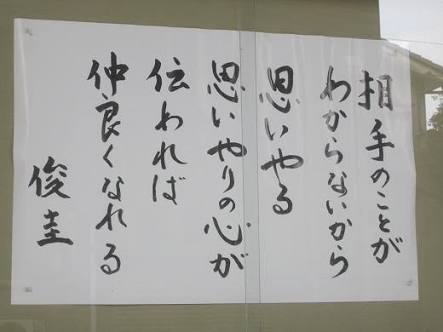 相手のことが
わからないから
思いやる
思いやりの心が
伝われば
仲良くなれる
俊圭